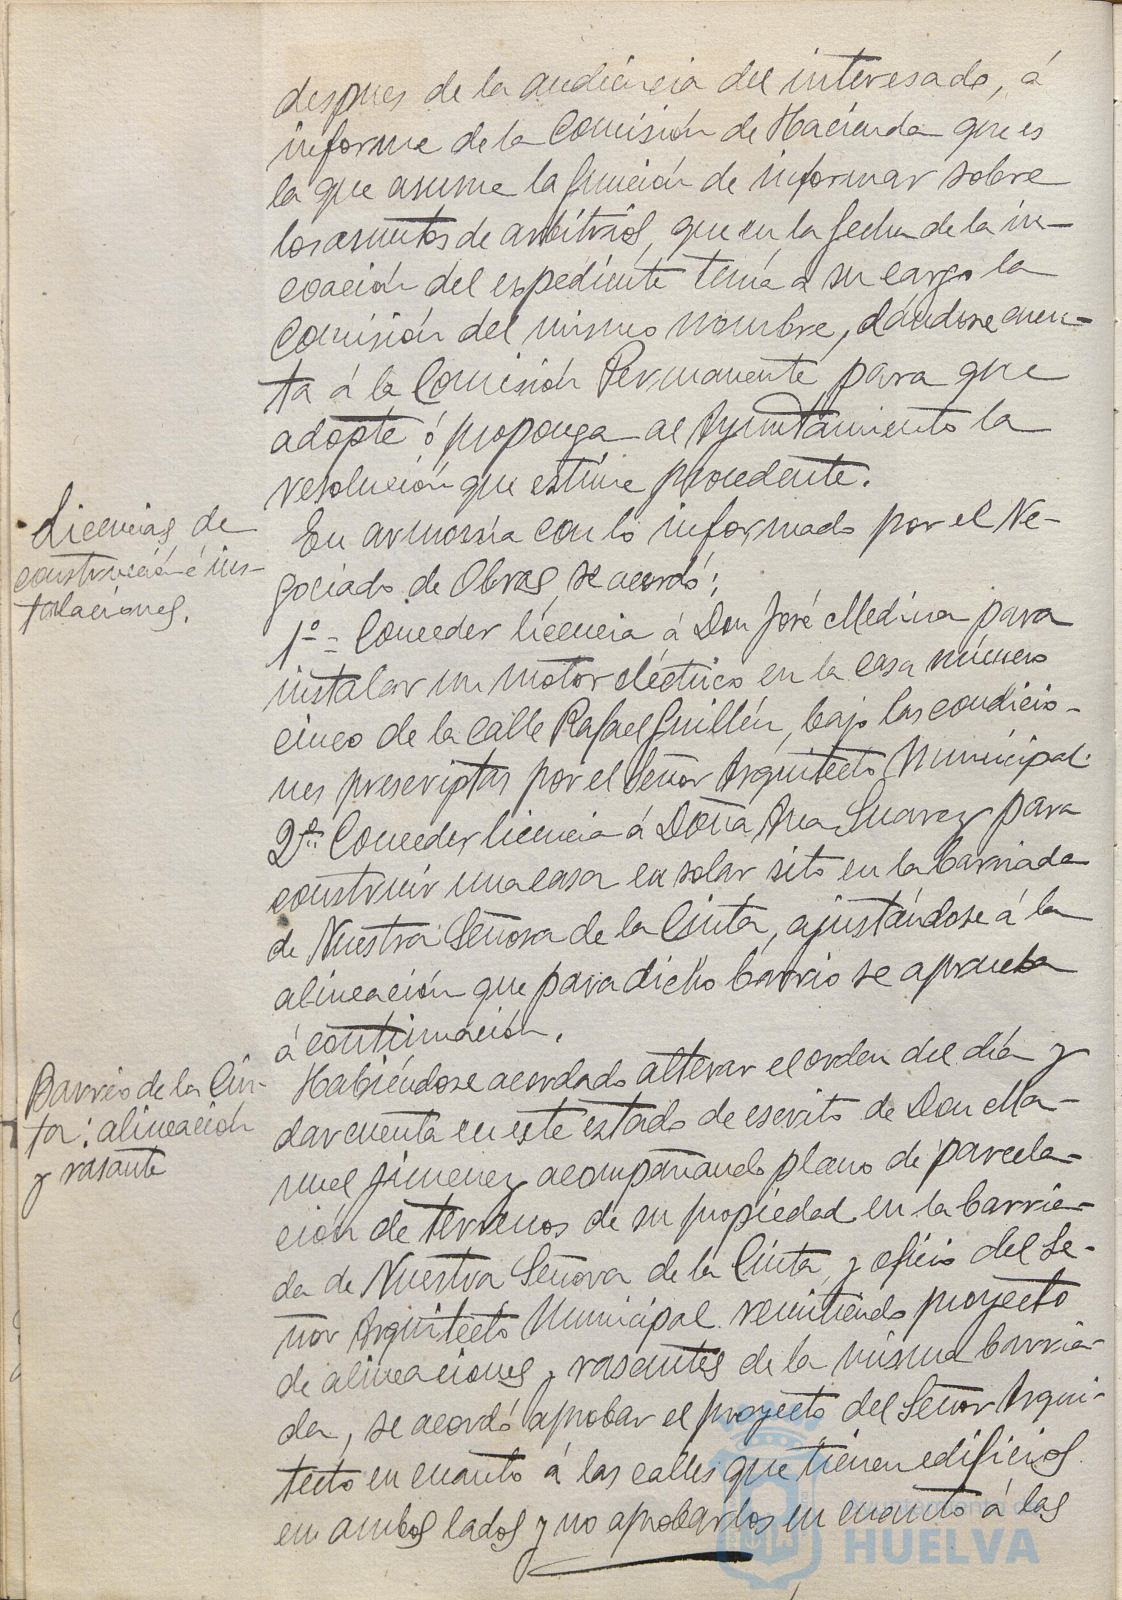 despues de la audiencia del interesado, á
informe de la Comisión de Hacienda que es
la que asume la función de informar sobre
los asuntos de arbitrios, que en la fecha de la in-
coación del expediente tenía a su cargo la
Comisión del mismo nombre, dándose cuen-
ta á la Comisión Permanente para que
adopte ó proponga al Ayuntamiento la
resolución que estime procedente.
Licencias de
construcción é ins-
talaciones.
En armonía con lo informado por el Ne-
gociado de Obras, se acordó:
1º = Conceder licencia á Don José Medina para
instalar un motor eléctrico en la casa número
cinco de la calle Rafael Guillén, bajo las condicio-
nes prescriptas por el Señor Arquitecto Municipal.
2º. Conceder licencia á Doña Ana Suarez para
construir una casa en solar sito en la barriada
de Nuestra Señora de la Cinta, ajustándose á la
alineación que para dicho barrio se aprueba
á continuación.
Barrio de la Cin-
ta: alineación
y rasante
Habiéndose acordado alterar el orden del día y
dar cuenta en este estado de escrito de Don Ma-
nuel Jimenez acompañando plano de parcela-
ción de terrenos de su propiedad en la barria-
da de Nuestra Señora de la Cinta, y oficio del Se-
ñor Arquitecto Municipal remitiendo proyecto
de alineaciones y rasantes de la misma barria-
da, se acordó aprobar el proyecto del Señor Arqui-
tecto en cuanto á las calles que tienen edificios
en ambos lados y no aprobarlos en cuanto á las
Ayuntamiento de
HUELVA